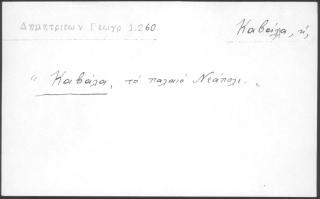 Δημητριεων Γεωγρ 1.260
Καβάλα, ἡ
" Καβάλα, τὸ παλαιὸ Νεάπολι. "